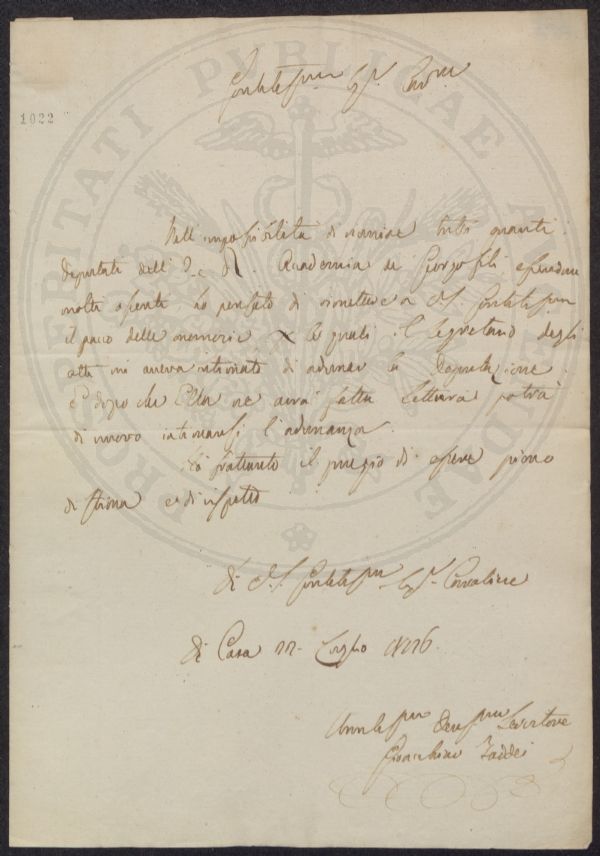 Gentilissmo Sigr. Cavre.
1022
Nell'impossibilità di riunire tutti quanti
deputati dell'I. e R. Accademia de Georgofili essendone
molti assenti ho pensato di rimettere a V.S. Gentilissma
il pacco delle memorie per le quali il Segretario degli
atti mi aveva intimato di adunar la Deputazione.
E dopo che Ella ne avrà fatta lettura potrà
di nuovo intimarsi l'adunanza.
Ho frattanto il pregio di essere pieno
di stima e di rispetto
di V.S. Gentilissma Sigr. Cavaliere
di Casa 22 Luglio 1826.
Umilissmo Devmo Servitore
Gioacchino Taddei
PROSPERITATI PVBLICAE AVGENDAE